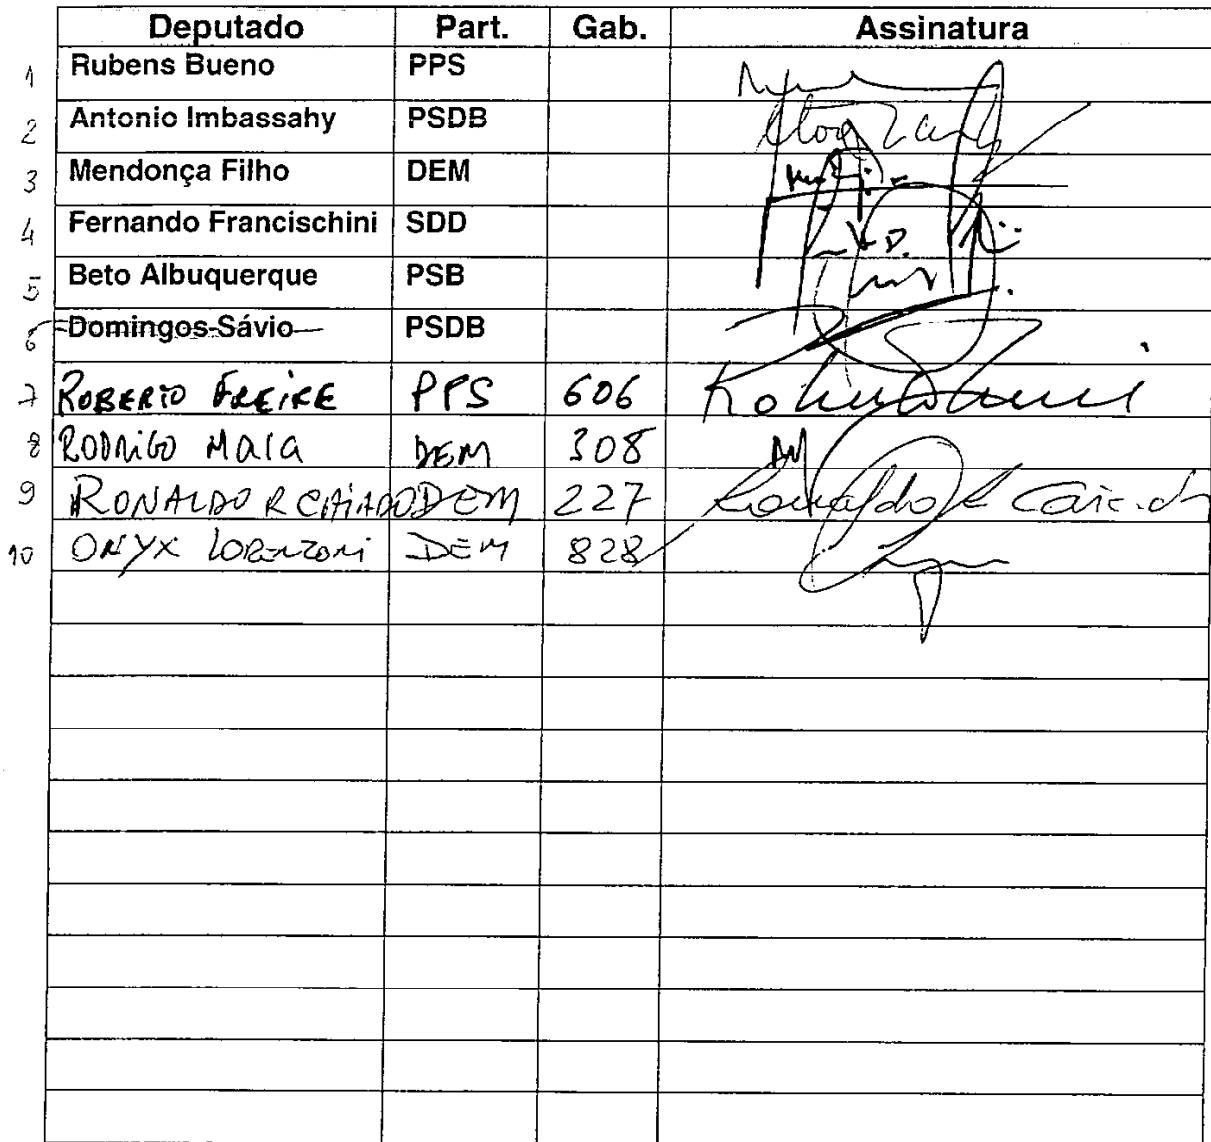 Deputado Part. Gab. Assinatura
1 Rubens Bueno PPS
2 Antonio Imbassahy PSDB
3 Mendonça Filho DEM
4 Fernando Francischini SDD
5 Beto Albuquerque PSB
6 Domingos Sávio PSDB
7 ROBERTO FREIRE PPS 606
8 RODRIGO MAIA DEM 308
9 RONALDO R CAIADO DEM 227 Ronaldo R Caiado
10 ONYX LORENZONI DEM 828